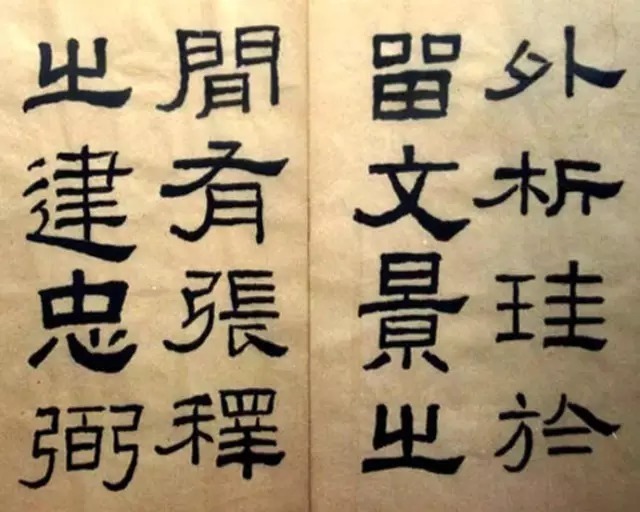 外析珪於
留文景之
閒有張釋
之建忠弼